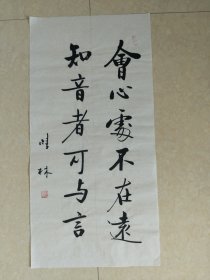 會心處不在遠
知音者可与言
晴林